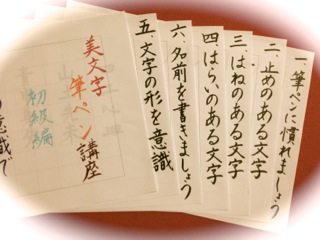 一、筆ペンに慣れましょう
二、止めのある文字
三、はねのある文字
四、はらいのある文字
六、名前を書きましょう
五、文字の形を意識
美文字
筆ペン講座
初級編
意識で